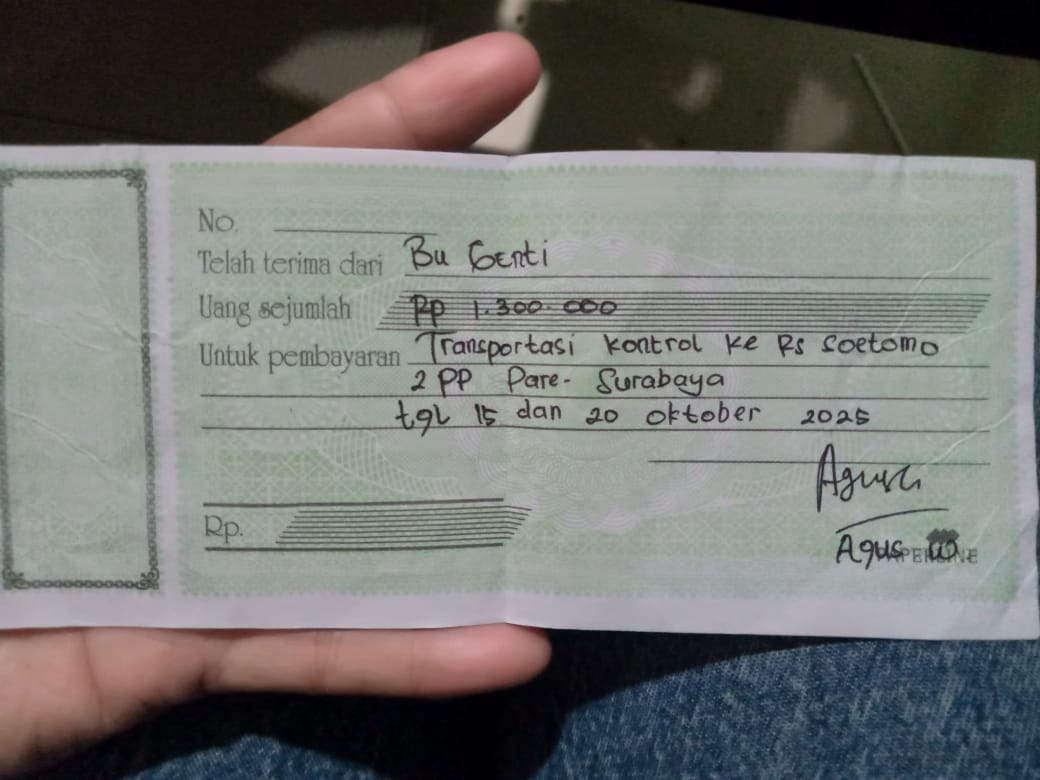 No.
Telah terima dari Bu Genti
Uang sejumlah Rp 1.300.000
Untuk pembayaran Transportasi kontrol ke Rs Soetomo
2 PP Pare- Surabaya
tgl 15 dan 20 oktober 2025
Rp.
Agus W.
PAPERLINE